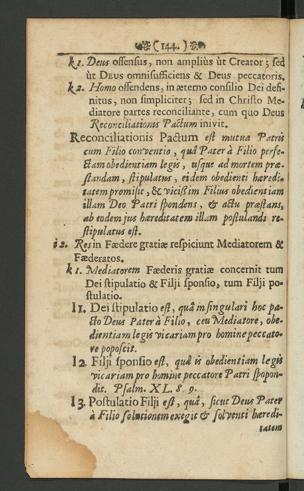 (144.)
k1. Deus offensus, non ampliùs ùt Creator; sed
ùt Deus omnisufficiens & Deus peccatoris.
k2. Homo offendens, in æterno consilio Dei defi-
nitus, non simpliciter; sed in Christo Me-
diatore partes reconciliante, cum quo Deus
Reconciliationis Pactum inivit.
Reconciliationis Pactum est mutua Patris
cum Filio conventio, quâ Pater à Filio perfe-
ctam obedientiam legis, usque ad mortem præ-
standam, stipulatus, eidem obedienti hæredi-
tatem promisit, & vicißim Filius obedientiam
illam Deo Patri spondens, & actu præstans,
ab eodem jus hæreditatem illam postulandi re-
stipulatus est.
i2. Res in Fœdere gratiæ respiciunt Mediatorem &
Fœderatos.
k1. Mediatorem Fœderis gratiæ concernit tum
Dei stipulatio & Filji sponsio, tum Filji po-
stulatio.
l1. Dei stipulatio est, quâ in singulari hoc pa-
cto Deus Pater à Filio, ceu Mediatore, obe-
dientiam legis vicariam pro homine peccato-
re poposcit.
l2. Filji sponsio est, quâ is obedientiam legis
vicariam pro homine peccatore Patri spopon-
dit. Psalm. XL. 8. 9.
l3. Postulatio Filji est, quâ, sicut Deus Pater
à Filio solutionem exegit & solventi hæredi-
tatem